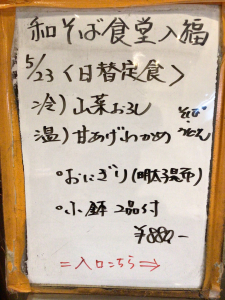 和そば食堂入福
5/23〈日替定食〉
冷）山菜おろし
温）甘あげわかめ
そば
うどん
・おにぎり（明太子昆布）
・小鉢 2品付
¥880-
＝入口こちら⇒